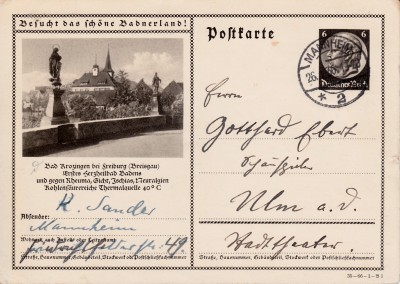 Besucht das schöne Badnerland!
Bad Krozingen bei Freiburg (Breisgau)
Erstes Herzheilbad Badens
und gegen Rheuma, Gicht, Ischias, Neuralgien
Kohlensäurereiche Thermalquelle 40° C
Absender:
K. Sander
Mannheim
Wohnort, auch Zustell- oder Leitpostamt
49.
Straße, Hausnummer, Gebäudeteil, Stockwerk od. Postschließfachnummer
Postkarte
6 6
Deutsches Reich
MANNHEIM
2
Herrn
Gotthard Ebert
Schauspieler
Ulm a. d.
Stadttheater.
Straße, Hausnummer, Gebäudeteil, Stockwerk od. Postschließfachnummer